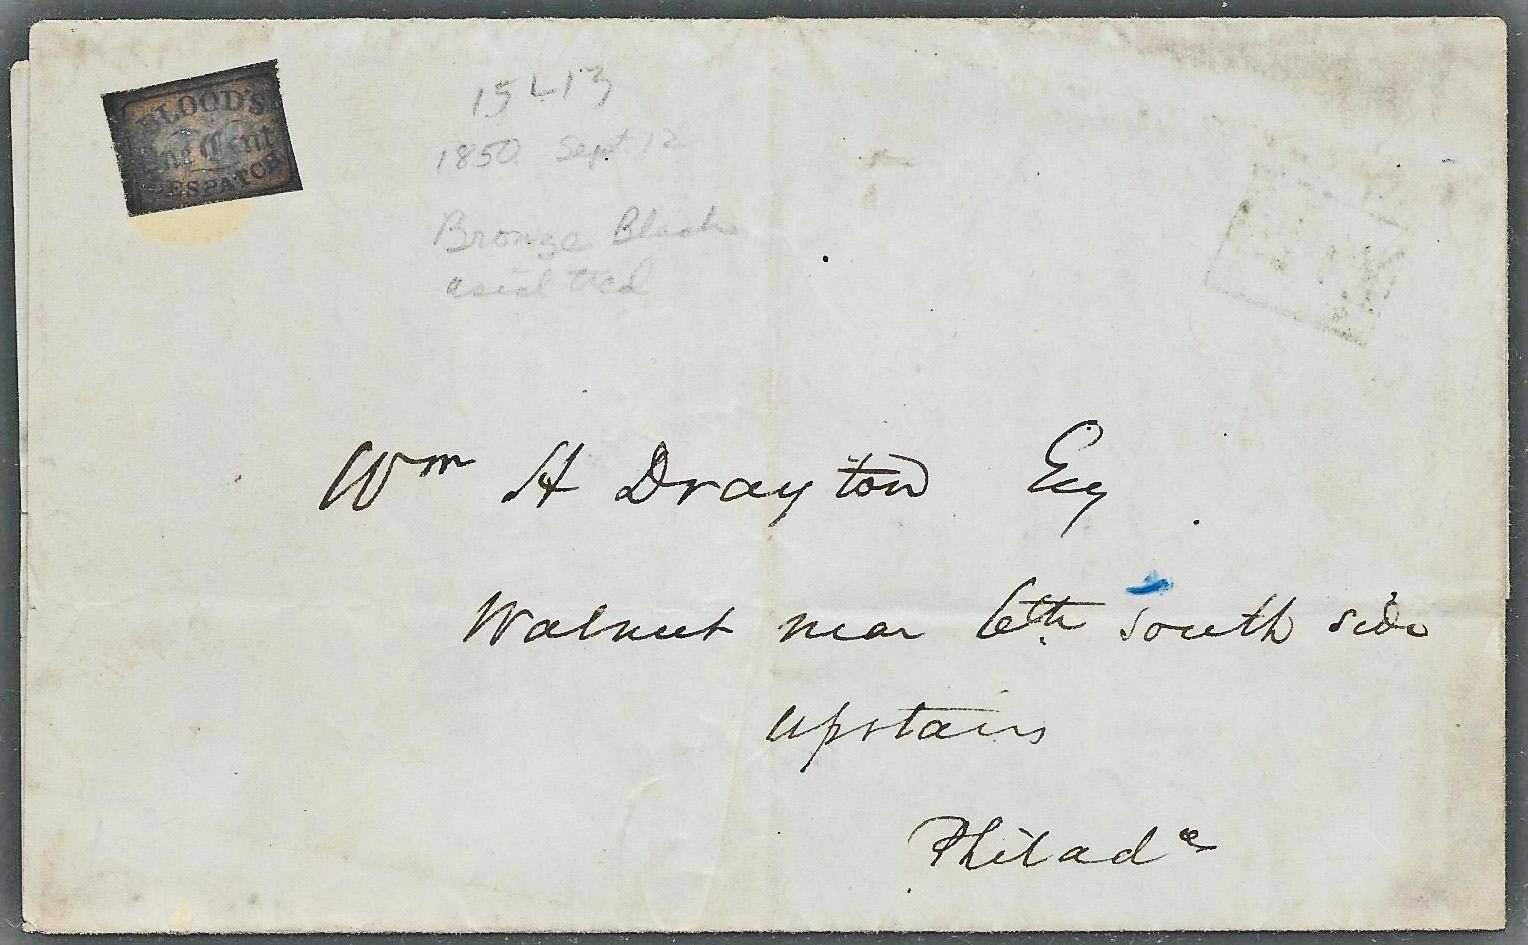 BLOOD'S
One Cent
DESPATCH
15L13
1850 Sept 12
Bronze Black
acid tied
Wm H Drayton Esq
Walnut near 6th South side
upstairs
Philada